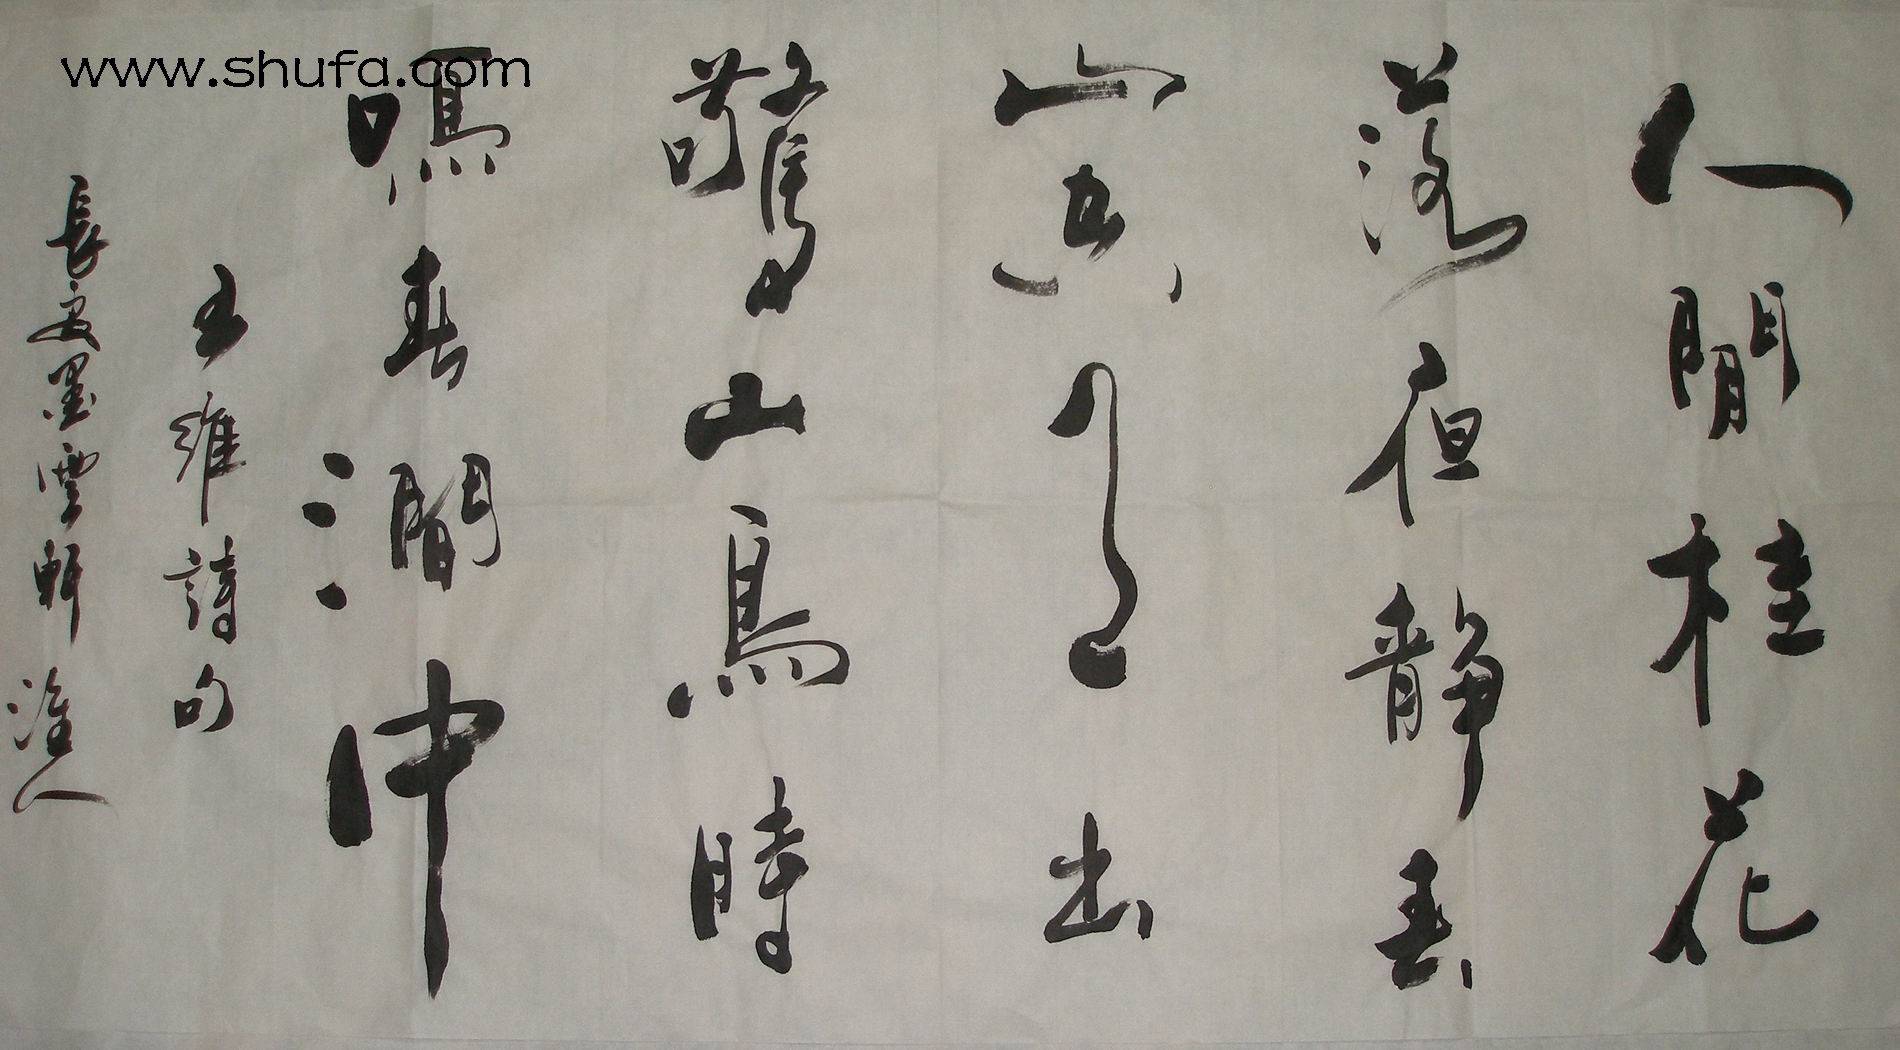 人閒桂花
落夜静春
山空月出
驚山鳥時
鳴春澗中
王維詩句
長安墨雲軒 人
www.shufa.com